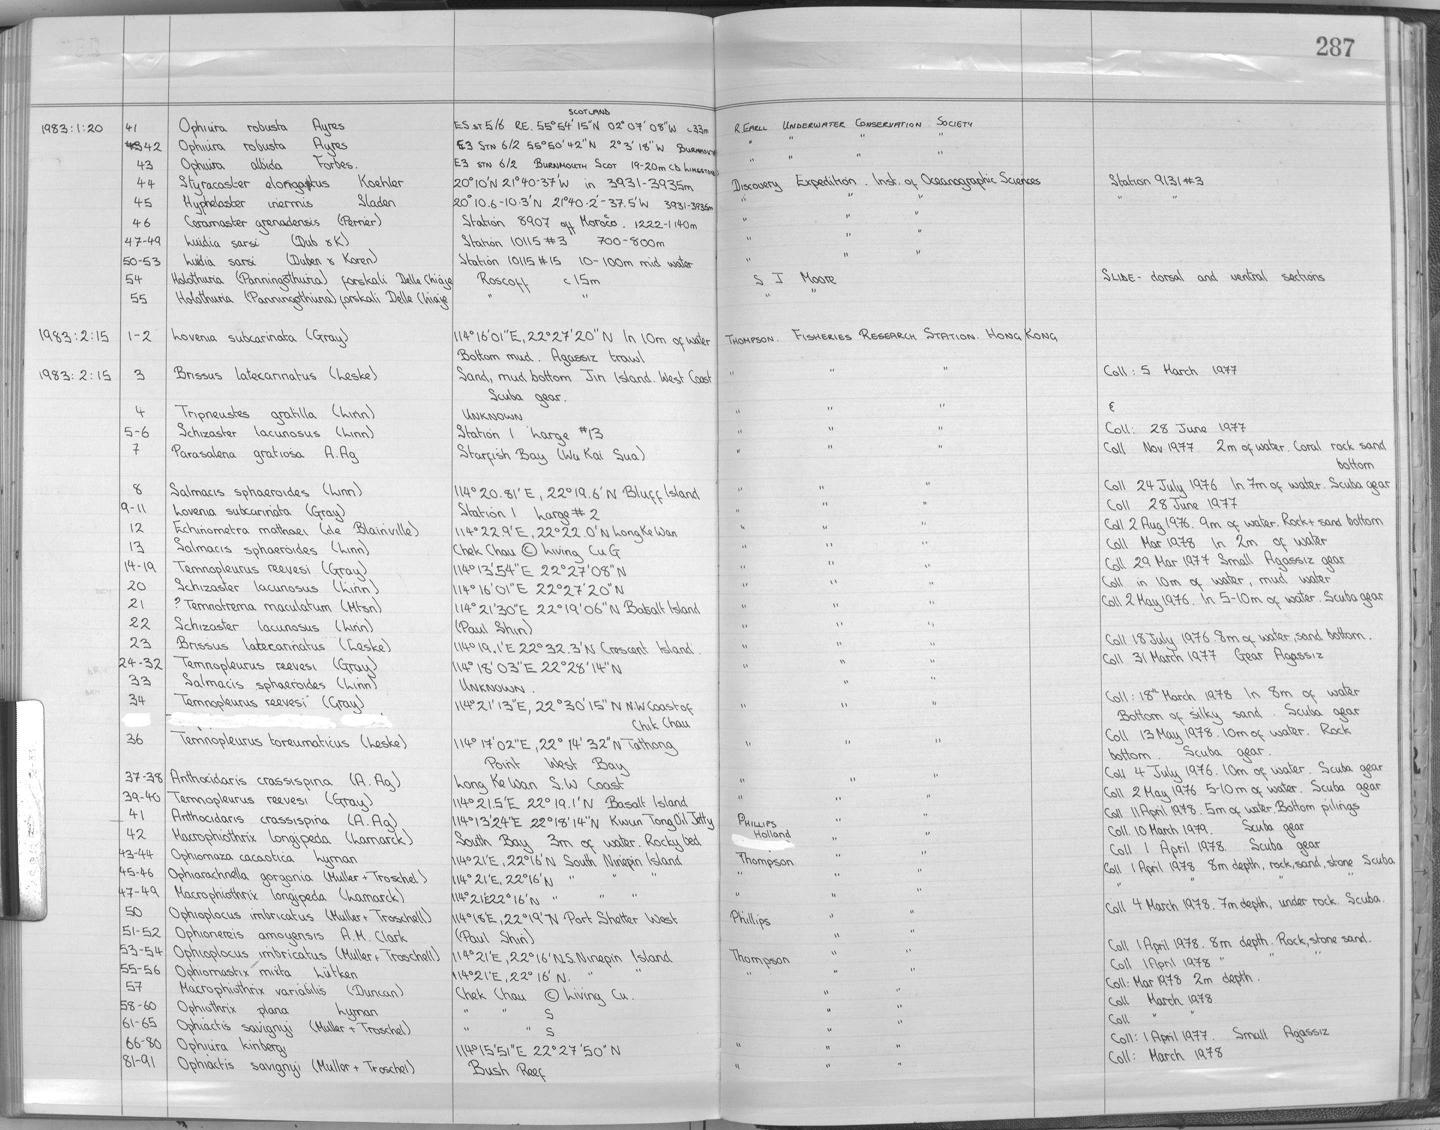 287
SCOTLAND
1983:1:20 41 Ophiura robusta Ayres ES ST 5/6 RE. 55°54'15"N 02°07'08"W c33m R EARLL UNDERWATER CONSERVATION SOCIETY
42 Ophiura robusta Ayres E3 STN 6/2 55°50'42"N 2°3'18"W BURNMOUTH " " " "
43 Ophiura albida Forbes. E3 STN 6/2 BURNMOUTH SCOT 19-20m " " "
44 Styracaster elongatus Koehler 20°10'N 21°40-37'W in 3931-3935m Discovery Expedition. Inst. of Oceanographic Sciences Station 9131#3
45 Hyphalaster inermis Sladen 20°10.6-10.3'N 21°40.2'-37.5'W 3931-3935m " " " " "
46 Ceramaster grenadensis (Perrier) Station 8907 off Moroco. 1222-1140m " " "
47-49 Luidia sarsi (Dub & K) Station 10115 #3 700-800m " " "
50-53 Luidia sarsi (Duben & Koren) Station 10115 #15 10-100m mid water " " "
54 Holothuria (Panningothuria) forskali Delle Chiaje Roscoff c15m S J Moore SLIDE- dorsal and ventral sections
55 Holothuria (Panningothuria) forskali Delle Chiaje " " " "
1983:2:15 1-2 Lovenia subcarinata (Gray) 114°16'01"E, 22°27'20"N In 10m of water THOMPSON. FISHERIES RESEARCH STATION. HONG KONG
Bottom mud. Agassiz trawl
1983:2:15 3 Brissus latecarinatus (Leske) Sand, mud bottom Jin Island. West Coast " " " Coll: 5 March 1977
Scuba gear.
4 Tripneustes gratilla (Linn) UNKNOWN " " " &
5-6 Schizaster lacunosus (Linn) Station 1 Large #13 " " " Coll: 28 June 1977
7 Parasalena gratiosa A.Ag Starfish Bay (Wu Kai Sua) " " " Coll Nov 1977 2m of water. Coral rock sand
bottom
8 Salmacis sphaeroides (Linn) 114°20.81'E, 22°19.6'N Bluff Island " " " Coll 24 July 1976 In 7m of water. Scuba gear
9-11 Lovenia subcarinata (Gray) Station 1 Large #2 " " " Coll 28 June 1977
12 Echinometra mathaei (de Blainville) 114°22.9'E, 22°22.0'N Long Ke Wan " " " Coll 2 Aug 1976. 9m of water. Rock + sand bottom
13 Salmacis sphaeroides (Linn) Chek Chau © Living Cu G " " " Coll Mar 1978 In 2m of water
14-19 Temnopleurus reevesi (Gray) 114°13'54"E 22°27'08"N " " " Coll 29 Mar 1977 Small Agassiz gear
20 Schizaster lacunosus (Linn) 114°16'01"E 22°27'20"N " " " Coll in 10m of water, mud water
21 ?Temnotrema maculatum (Mtsn) 114°21'30"E 22°19'06"N Basalt Island " " " Coll 2 May 1976. In 5-10m of water. Scuba gear
22 Schizaster lacunosus (Linn) (Paul Shin) " " "
23 Brissus latecarinatus (Leske) 114°19.1'E 22°32.3'N Crescent Island. " " " Coll 18 July 1976 8m of water, sand bottom.
24-32 Temnopleurus reevesi (Gray) 114°18'03"E 22°28'14"N " " " Coll 31 March 1977 Gear Agassiz
33 Salmacis sphaeroides (Linn) UNKNOWN. " " "
34 Temnopleurus reevesi (Gray) 114°21'13"E, 22°30'15"N N.W Coast of " " " Coll: 18th March 1978 In 8m of water
Chik Chau Bottom of silky sand. Scuba gear
36 Temnopleurus toreumaticus (Leske) 114°17'02"E, 22°14'32"N Tathong " " " Coll 13 May 1978. 10m of water. Rock
Point West Bay bottom. Scuba gear.
37-38 Anthocidaris crassispina (A.Ag) Long Ke Wan S.W Coast " " " Coll 4 July 1976. 10m of water. Scuba gear
39-40 Temnopleurus reevesi (Gray) 114°21.5'E 22°19.1'N Basalt Island " " " Coll 2 May 1976 5-10m of water. Scuba gear
41 Anthocidaris crassispina (A.Ag) 114°13'24"E 22°18'14"N Kwun Tong Oil Jetty PHILLIPS " " Coll 11 April 1978. 5m of water Bottom pilings
42 Macrophiothrix longipeda (Lamarck) South Bay 3m of water. Rocky bed Holland " " Coll. 10 March 1979. Scuba gear
43-44 Ophiomaza cacaotica Lyman 114°21'E, 22°16'N South Ninepin Island Thompson " " Coll 1 April 1978. Scuba gear
45-46 Ophiarachnella gorgonia (Muller + Troschel) 114°21'E, 22°16'N " " " " " Coll 1 April 1978 8m depth, rock, sand, stone Scuba
47-49 Macrophiothrix longipeda (Lamarck) 114°21'E 22°16'N " " " " " " " " "
50 Ophioplocus imbricatus (Muller + Troschell) 114°18'E, 22°19'N Port Shelter West Phillips " " Coll 4 March 1978. 7m depth, under rock. Scuba.
51-52 Ophionereis amoyensis A.M. Clark (Paul Shin) " "
53-54 Ophioplocus imbricatus (Muller + Troschell) 114°21'E, 22°16'N S. Ninepin Island Thompson " " Coll 1 April 1978. 8m depth. Rock, stone sand.
55-56 Ophiomastix mixta Lütken 114°21'E, 22°16'N. " " " " " Coll 1 April 1978 " " "
57 Macrophiothrix variabilis (Duncan) Chek Chau © Living Cu. " " Coll: Mar 1978 2m depth.
58-60 Ophiothrix plana Lyman " " S " " Coll March 1978
61-65 Ophiactis savignyi (Muller + Troschel) " " S " " Coll " "
66-80 Ophiura kinbergi 114°15'51"E 22°27'50"N " " " Coll: 1 April 1977. Small Agassiz
81-91 Ophiactis savignyi (Muller + Troschel) Bush Reef " " " Coll: March 1978